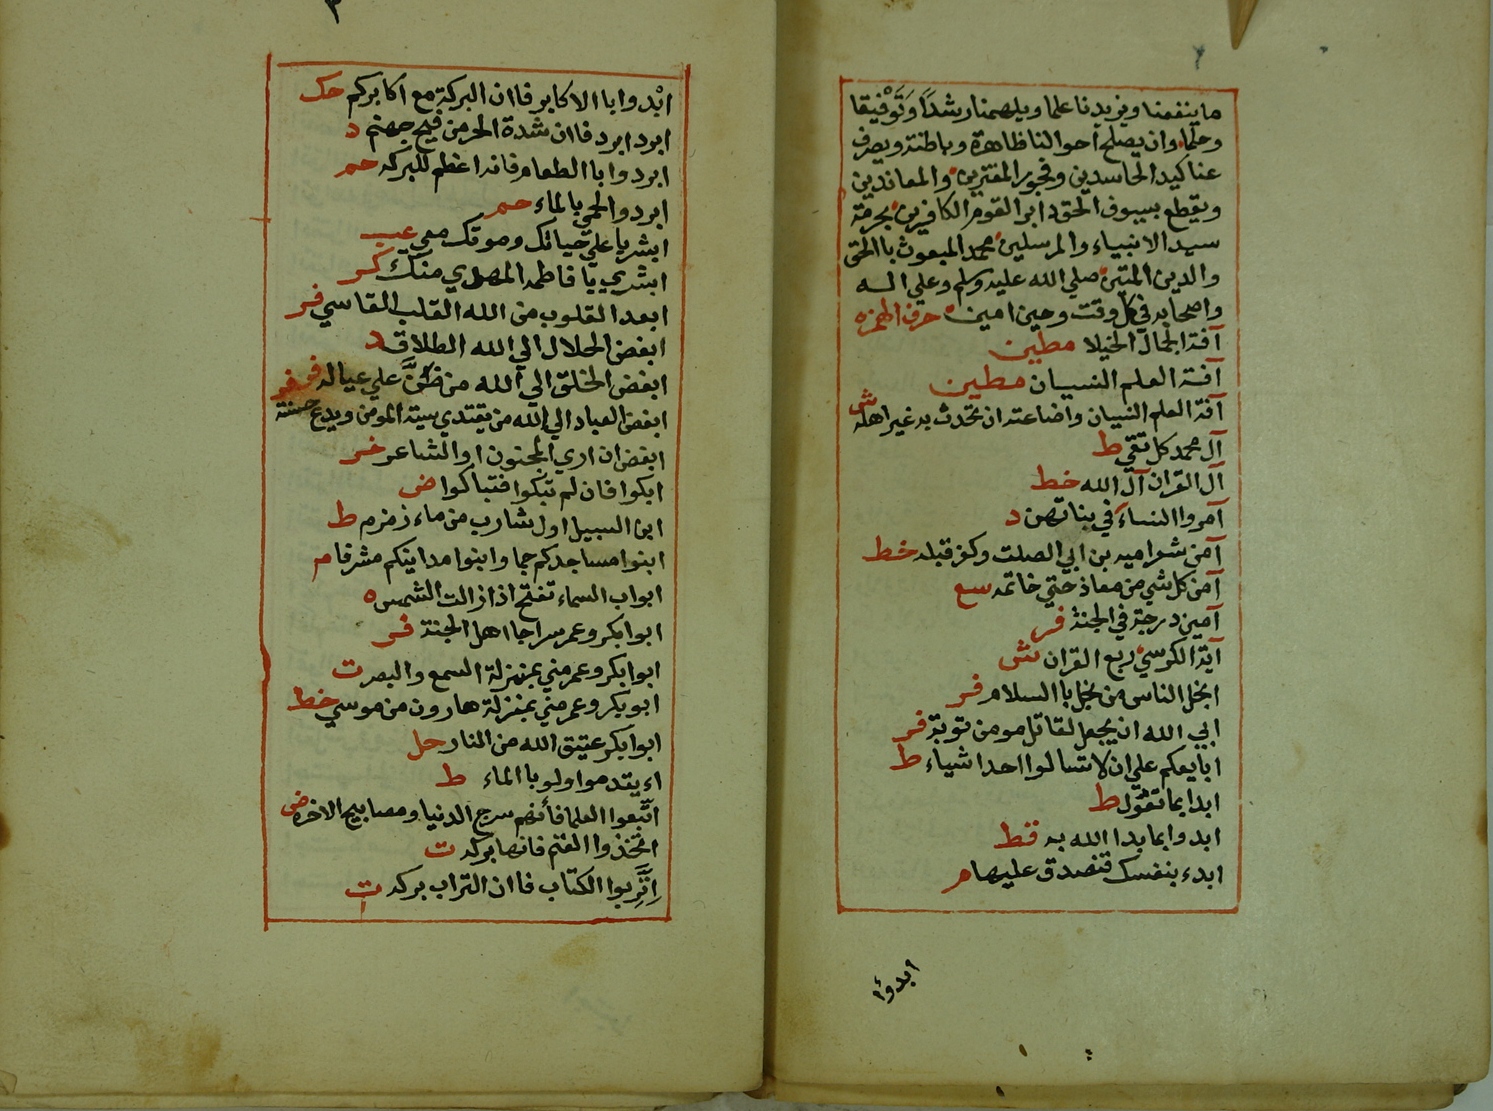 ما ينفعنا ويزيدنا علما ويلهمنا رشدًا وَتَوْفيقا
وحلما وان يصلح احوالنا ظاهرة وباطنة ويصرف
عنا كيد الحاسدين وفجور المفترين والمعاندين
ويقطع بسيوف الحق دابر القوم الكافرين بحرمة
سيد الانبياء والمرسلين محمد المبعوث باالحق
والدين المتين صلي الله عليه وسلم وعلي اله
واصحابه في كل وقت وحين امين ه حرف الهمزه
آفة الجمال الخيلا مطين
آفة العلم النسيان مطين
آفة العلم النسيان واضاعته ان تحدث به غير اهله ش
آل محمد كل تقي ط
آل القران آل الله خط
آمروا النساء في بناتهن د
آمن شعر اميه بن ابي الصلت وكفر قبله خط
آمن كل شي من معاذ حتي خاتمه سع
آمين درجة في الجنة فر
آية الكرسي ربع القران ش
ابخل الناس من بخل باالسلام فر
ابي الله ان يجعل لقاتل مومن توبة فر
ابايعكم علي ان لا تسالوا احدا شياء ط
ابدا بما تعول ط
ابدوا بما بدا الله به قط
ابدء بنفسك فتصدق عليها م
ابدؤا
ابْدوا باالاكابر فاان البركة مع اكابركم حك
ابرد ابرد فاان شدة الحر من فيح جهنم د
ابردوا باالطعام فانه اعظم للبركه حم
ابردو الحمي باالماء حم
ابشر يا علي حياتك وموتك معي عب
ابشري يا فاطمه المهدي منك كر
ابعد القلوب من الله القلب القاسي فر
ابغض الحلال الي الله الطلاق د
ابغض الخلق الي الله من ضنَّ علي عياله فر
ابغض العباد الي الله من يقتدي سيئة المومن ويدع حسنته فر
ابغض ان اري المجنون او الشاعر خر
ابكوا فان لم تبكوا فتباكوا ض
ابن السبيل اول شارب من ماء زمزم ط
ابنوا مساجدكم جما وابنوا مداينكم مشرفا م
ابواب السماء تفتح اذا زالت الشمس ه
ابوابكر وعمر سراجا اهل الجنة فر
ابوابكر وعمر مني بمنزلة السمع والبصر ت
ابوبكر وعمر مني بمنزلة هارون من موسي خط
ابوابكر عتيق الله من النار حل
اء يقدموا ولو باالماء ط
اتّبعوا العلما فأنهم سرج الدنيا ومصابيح الاخره ض
اتخذوا الغنم فانها بركه ت
اِتَّرِبوا الكتاب فاان التراب بركه ت